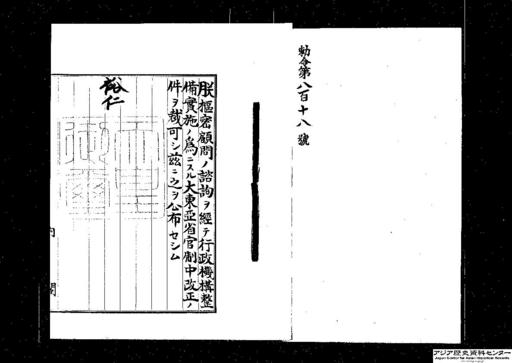 勅令第八百十八號
朕樞密顧問ノ諮詢ヲ經テ行政機構整
備實施ノ爲ニスル大東亞省官制中改正ノ
件ヲ裁可シ茲ニ之ヲ公布セシム
裕仁
内閣
アジア歴史資料センター
Japan Center for Asian Historical Records